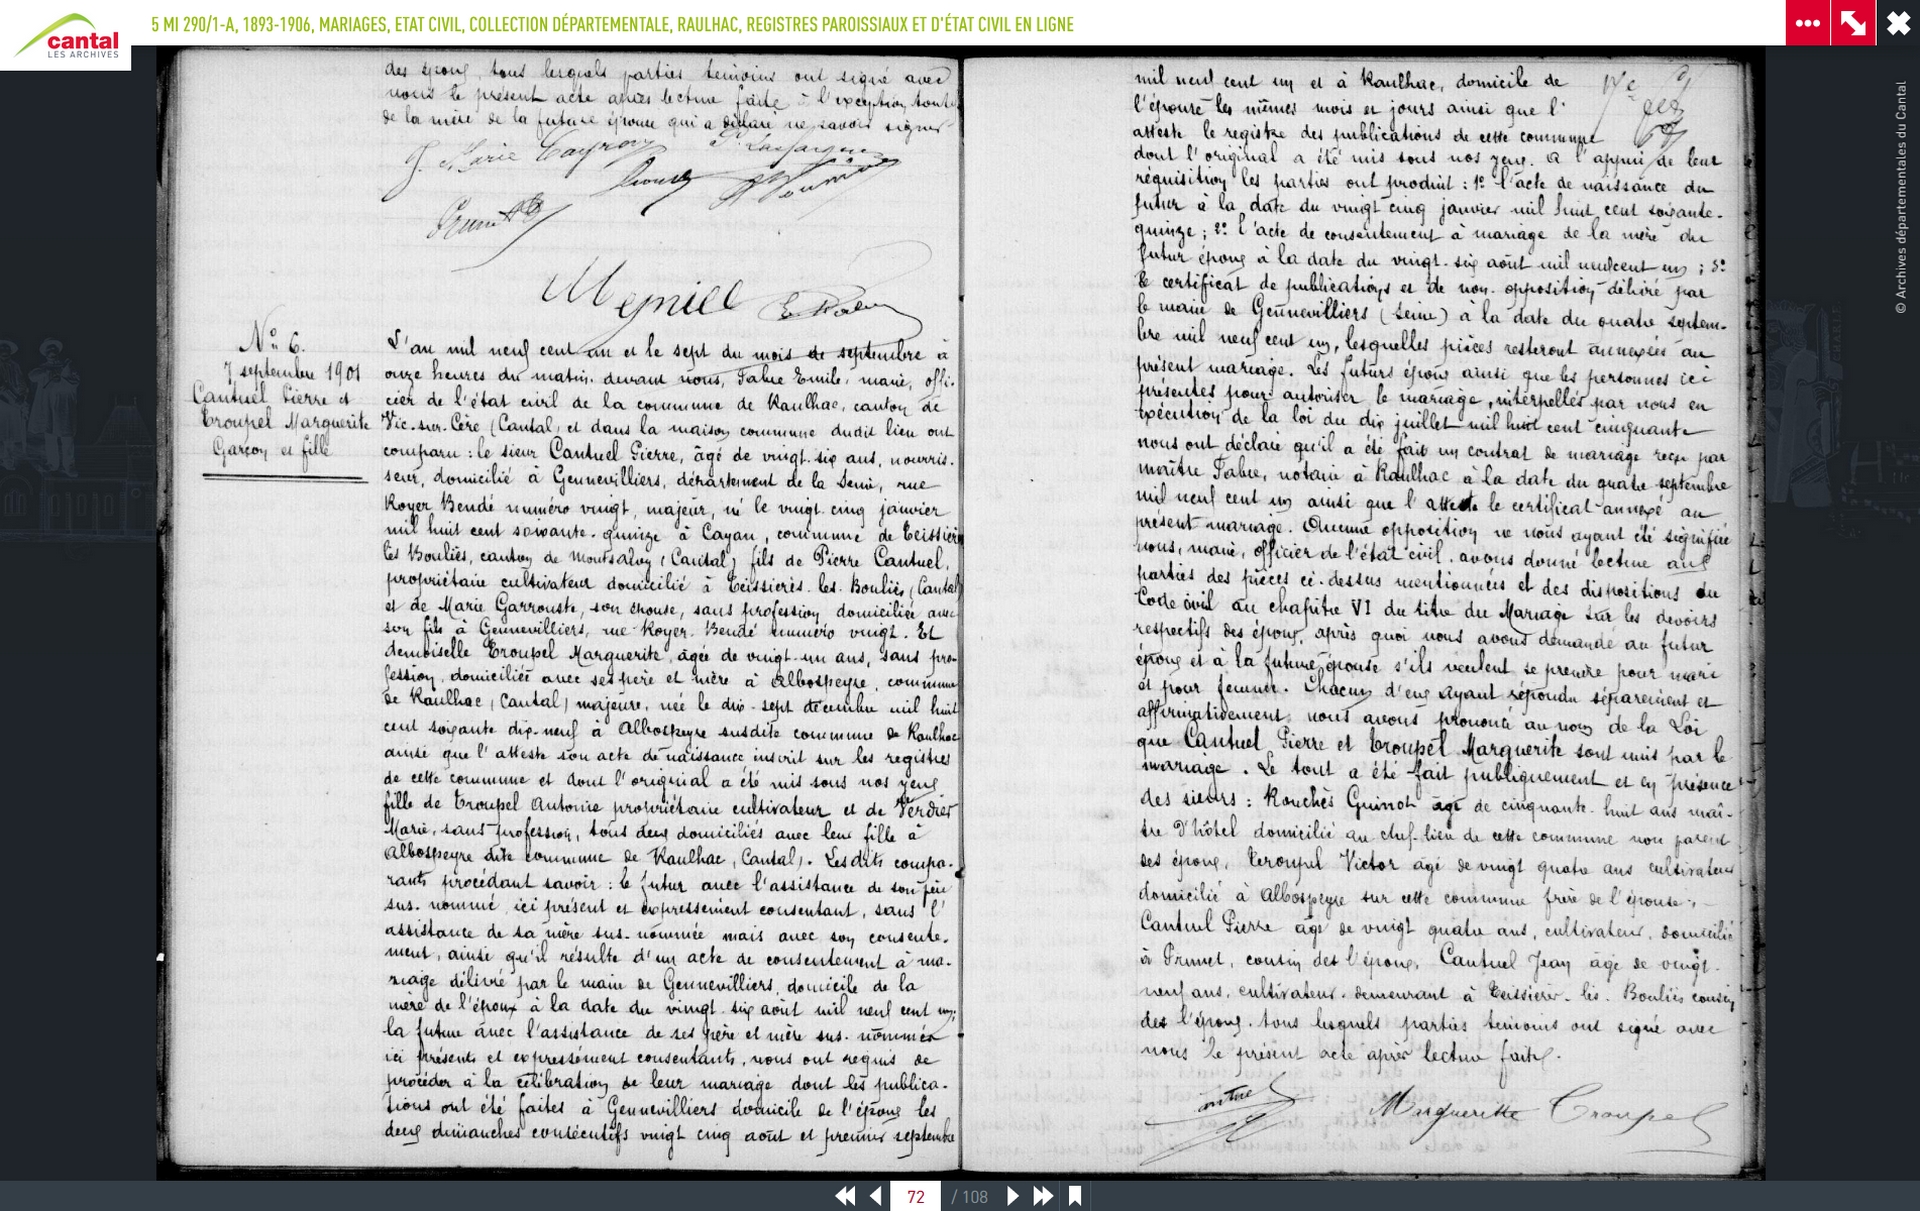 cantal
LES ARCHIVES
5 MI 290/1-A, 1893-1906, MARIAGES, ETAT CIVIL, COLLECTION DÉPARTEMENTALE, RAULHAC, REGISTRES PAROISSIAUX ET D'ÉTAT CIVIL EN LIGNE
des époux, tous lesquels parties témoins ont signé avec
nous le présent acte après lecture faite à l'exception toute
de la mère de la future épouse qui a déclaré ne savoir signer
J. Marie
Nº 6.
7 septembre 1901
Cantuel Pierre et
Troupel Marguerite
Garçon et fille
L'an mil neuf cent un et le sept du mois de septembre à
onze heures du matin. devant nous, Fabre Emile, maire, offi-
cier de l'état civil de la commune de Raulhac, canton de
Vic-sur-Cère (Cantal) et dans la maison commune dudit lieu ont
comparu : le sieur Cantuel Pierre, âgé de vingt-six ans, nourris-
seur, domicilié à Gennevilliers, département de la Seine, rue
Royer Bendé numéro vingt, majeur, né le vingt-cinq janvier
mil huit cent soixante-quinze à Cayan, commune de Teissières
les Bouliès, canton de Montsalvy (Cantal) fils de Pierre Cantuel,
propriétaire cultivateur domicilié à Teissières-les-Bouliès (Cantal)
et de Marie Garrouste, son épouse, sans profession domiciliée avec
son fils à Gennevilliers, rue Royer-Bendé numéro vingt. Et
demoiselle Troupel Marguerite, âgée de vingt-un ans, sans pro-
fession, domiciliée avec ses père et mère à Albospeyre, commune
de Raulhac (Cantal) majeure, née le dix-sept décembre mil huit
cent soixante dix-neuf à Albospeyre susdite commune de Raulhac
ainsi que l'atteste son acte de naissance inscrit sur les registres
de cette commune et dont l'original a été mis sous nos yeux
fille de Troupel Antoine propriétaire cultivateur et de Verdier
Marie, sans profession, tous deux domiciliés avec leur fille à
Albospeyre dite commune de Raulhac (Cantal). Lesdits compa-
rants procédant savoir : le futur avec l'assistance de son père
sus-nommé, ici présent et expressément consentant, sans l'
assistance de sa mère sus-nommée mais avec son consente-
ment, ainsi qu'il résulte d'un acte de consentement à ma-
riage délivré par le maire de Gennevilliers, domicile de la
mère de l'époux à la date du vingt-six août mil neuf cent un;
la future avec l'assistance de ses père et mère sus-nommés
ici présents et expressément consentants, nous ont requis de
procéder à la célébration de leur mariage dont les publica-
tions ont été faites à Gennevilliers domicile de l'époux les
deux dimanches consécutifs vingt cinq août et premier septembre
mil neuf cent un et à Raulhac, domicile de
l'épouse les mêmes mois et jours ainsi que l'
atteste le registre des publications de cette commune
dont l'original a été mis sous nos yeux. A l'appui de leur
réquisition les parties ont produit : 1º l'acte de naissance du
futur à la date du vingt-cinq janvier mil huit cent soixante-
quinze ; 2º l'acte de consentement à mariage de la mère du
futur époux à la date du vingt-six août mil neuf cent un ; 3º
le certificat de publications et de non-opposition délivré par
le maire de Gennevilliers (Seine) à la date du quatre septem-
bre mil neuf cent un, lesquelles pièces resteront annexées au
présent mariage. Les futurs époux ainsi que les personnes ici
présentes pour autoriser le mariage, interpellés par nous en
exécution de la loi du dix juillet mil huit cent cinquante
nous ont déclaré qu'il a été fait un contrat de mariage reçu par
maître Fabre, notaire à Raulhac à la date du quatre septembre
mil neuf cent un ainsi que l'atteste le certificat annexé au
présent mariage. Aucune opposition ne nous ayant été signifiée
nous, maire, officier de l'état civil, avons donné lecture aux
parties des pièces ci-dessus mentionnées et des dispositions du
Code civil au chapitre VI du titre du Mariage sur les devoirs
respectifs des époux, après quoi nous avons demandé au futur
époux et à la future épouse s'ils veulent se prendre pour mari
et pour femme. Chacun d'eux ayant répondu séparément et
affirmativement, nous avons prononcé au nom de la Loi
que Cantuel Pierre et Troupel Marguerite sont unis par le
mariage. Le tout a été fait publiquement et en présence
des sieurs : Rouchès Guinot âgé de cinquante-huit ans maî-
tre d'hôtel domicilié au chef-lieu de cette commune non parent
des époux, Troupel Victor âgé de vingt quatre ans cultivateur
domicilié à Albospeyre sur cette commune frère de l'épouse ;
Cantuel Pierre âgé de vingt quatre ans, cultivateur, domicilié
à Prunet, cousin de l'époux, Cantuel Jean âgé de vingt-
neuf ans, cultivateur demeurant à Teissières-les-Bouliès cousin
de l'époux. tous lesquels parties témoins ont signé avec
nous le présent acte après lecture faite.
Marguerite Troupel
© Archives départementales du Cantal
72 / 108